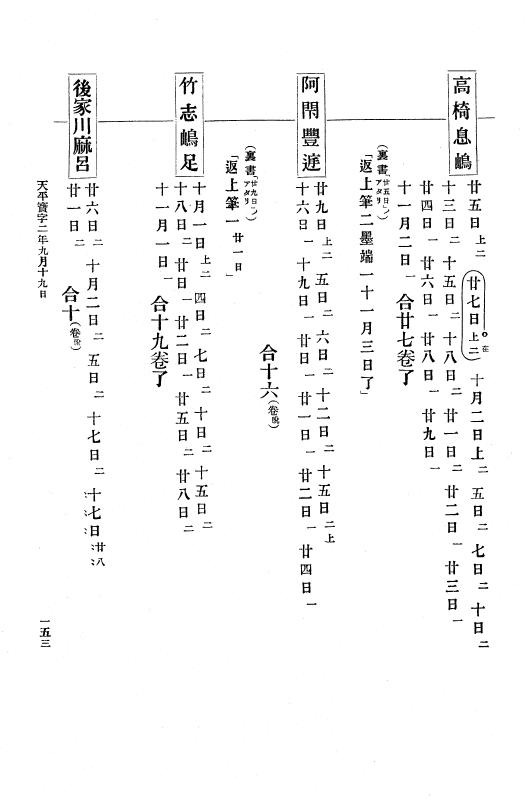 高椅息嶋
廿五日上二 廿七日上二 。在 十月二日上二 五日二 七日二 十日二
十三日二 十五日二 十八日二 廿一日二 廿二日一 廿三日一
廿四日一 廿六日一 廿八日一 廿九日一
十一月二日一 合廿七卷了
(裏書、「廿五日」ノアタリ)
「返上筆二墨端一十一月三日了」
阿閇豐庭
廿九日上二 五日二 六日二 十二日二 十五日二上
十六日一 十九日一 廿日一 廿一日一 廿二日一 廿四日一
合十六(卷脱)
(裏書、「廿九日」ノアタリ)
「返上筆一 廿一日」
竹志嶋足
十月一日上二 四日二 七日二 十日二 十五日二
十八日二 廿日一 廿二日一 廿五日二 廿八日二
十一月一日一 合十九卷了
後家川麻呂
廿六日二 十月二日二 五日二 十七日二 十七日 廿八
廿一日二 合十(卷脱)
天平寶字二年九月十九日
一五三